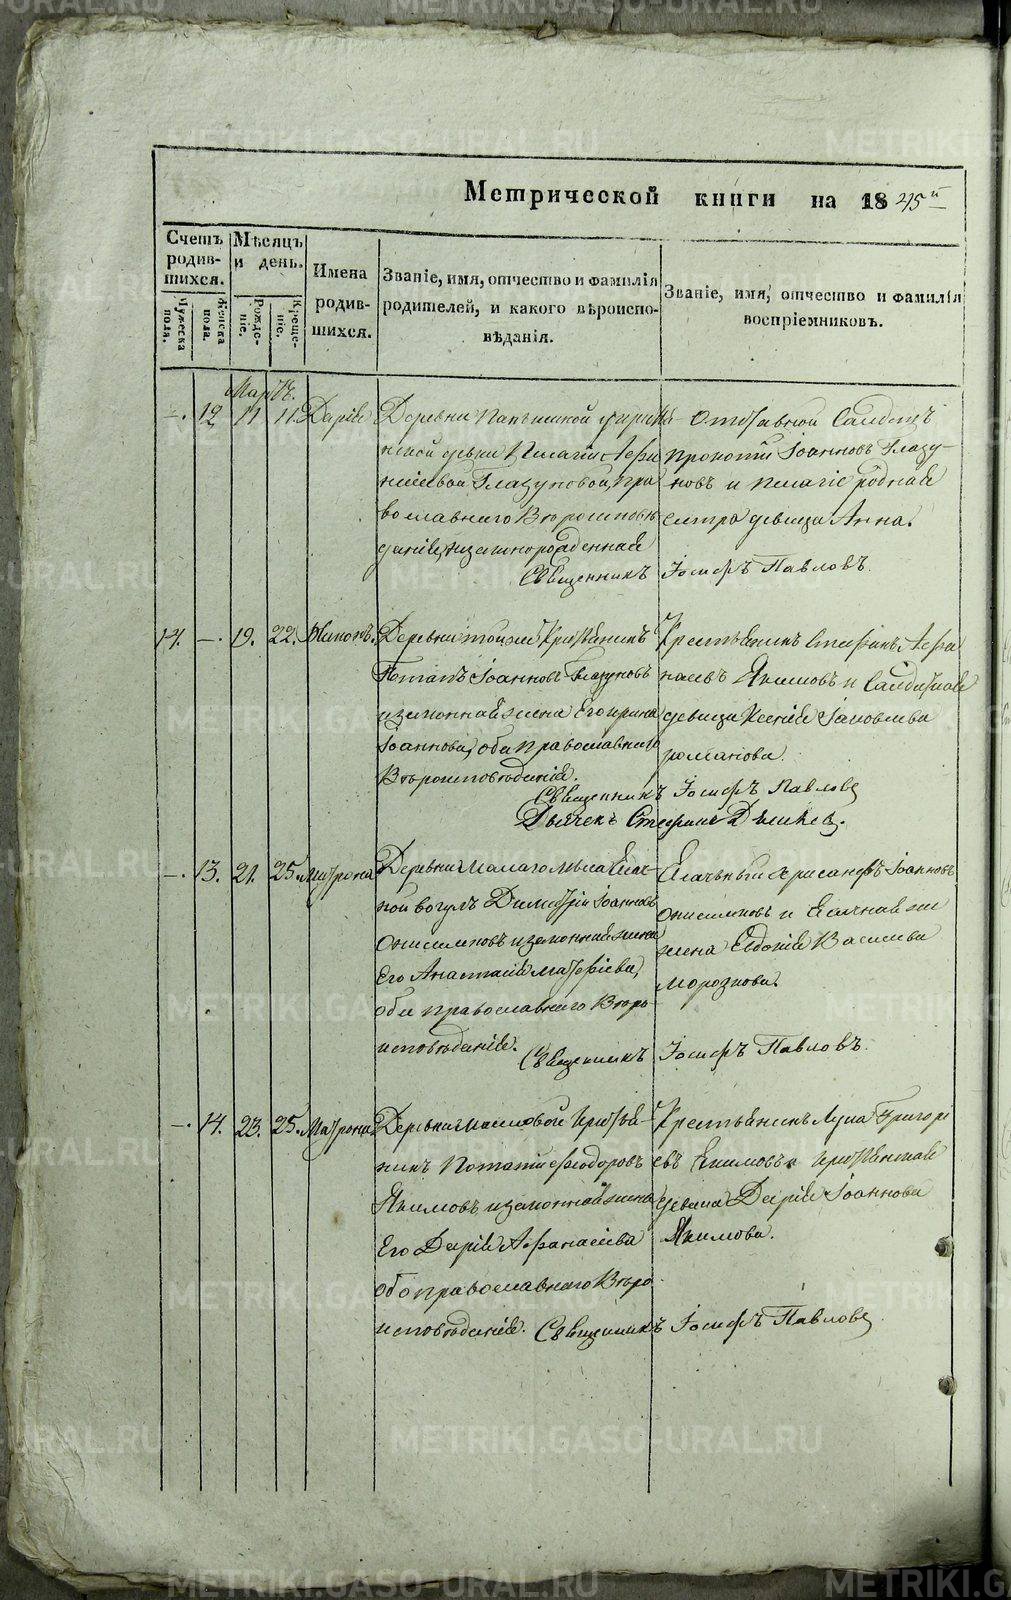 Метрической книги на 1845й
Счетъ родив-шихся.
Мужеска пола.
Женска пола.
Мѣсяцъ и день.
Рожде-ніе.
Креще-ніе.
Имена родив-шихся.
Званіе, имя, отчество и фамилія родителей, и какого вѣроиспо-вѣданія.
Званіе, имя, отчество и фамилія воспріемниковъ.
Мартъ.
–. 12. 11 11. Дарія
Деревни
ской девки Пелагіи Афа
насіевой Глазуновой, пра
вославнаго Вѣроисповѣ
данія, незаконнорожденная
Отставной Салдатъ
Прокопій Іоанновъ Глазу-
новъ и Пелагіе родная
сестра девица Анна.
Священникъ Іосифъ Павловъ.
14. –. 19. 22. Никонъ.
Деревни тойже Крестьянинъ
Потапъ Іоанновъ Глазуновъ
и законная жена Его Ирина
Іоаннова, оба православнаго
Вѣроисповѣданія.
Крестьянинъ Стефанъ Афа
насьевъ Якимовъ и Салдатская
девица Ксенія Іаковлева
романова.
Священникъ Іосифъ Павловъ
Дьячекъ Стефанъ
–. 13. 21. 25. Матрона
Деревни Малаго
вогулъ Димитрій Іоанновъ
Онисимовъ и законная жена
Его Анастасія Матѳіева,
оба православнаго Вѣро
исповѣданія.
Ясачный Хрисанфъ Іоанновъ
Онисимовъ и Ясачная же
жена Евдокія Василіева
Морознова.
Священникъ Іосифъ Павловъ.
–. 14. 23. 25. Матрона
Деревни Масловой Крестья
нинъ Потапій Феодоровъ
Якимовъ и законная жена
Его Дарія Афанасіева
оба православнаго Вѣро
исповѣданія.
Крестьянинъ Лука Григорі
евъ Якимовъ и Крестьянская
девица Дарія Іоаннова
Якимова.
Священникъ Іосифъ Павловъ
METRIKI.GASO-URAL.RU